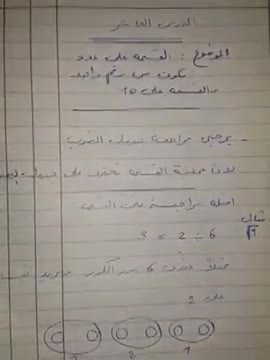 الدرس العاشر
الموضوع : القسمة على عدد
تكون من رقم واحد
والقسمة على 10
- يرجى مراجعة جدول الضرب
لان عملية القسمة تعتمد على جدول
امثلة مراجعة على
مثال
1
6 ÷ 2 = 3
مثلاً عندي 6 من
على 2
1 2 3